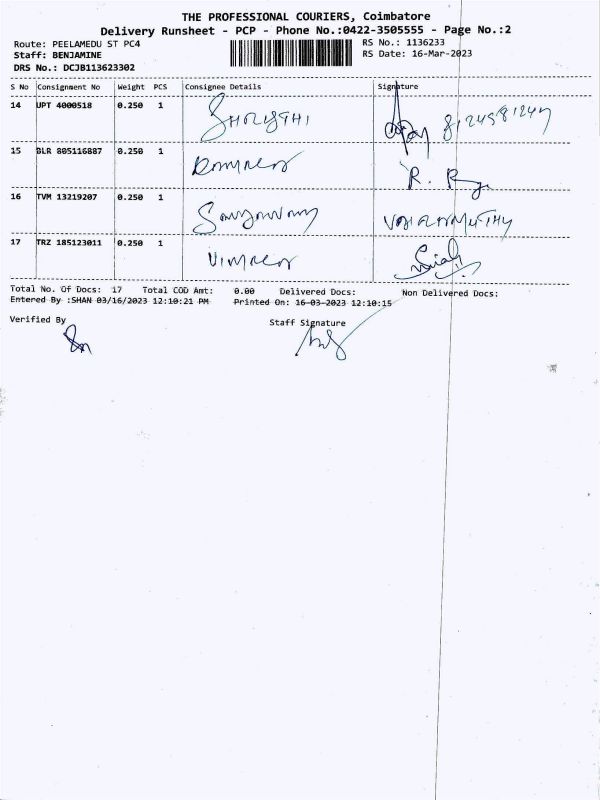 THE PROFESSIONAL COURIERS, Coimbatore
Delivery Runsheet - PCP - Phone No.:0422-3505555 - Page No.:2
Route: PEELAMEDU ST PC4
Staff: BENJAMINE
DRS No.: DCJB113623302
RS No.: 1136233
RS Date: 16-Mar-2023
S No Consignment No Weight PCS Consignee Details Signature
14 UPT 4000518 0.250 1
15 BLR 805116887 0.250 1
R.
16 TVM 13219207 0.250 1 VAIRAMUTHY
17 TRZ 185123011 0.250 1
Total No. Of Docs: 17 Total COD Amt: 0.00 Delivered Docs: Non Delivered Docs:
Entered By :SHAN 03/16/2023 12:10:21 PM Printed On: 16-03-2023 12:10:15
Verified By
Staff Signature